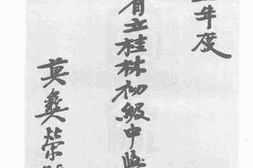 年度
省立桂林初級中學
莫彝榮